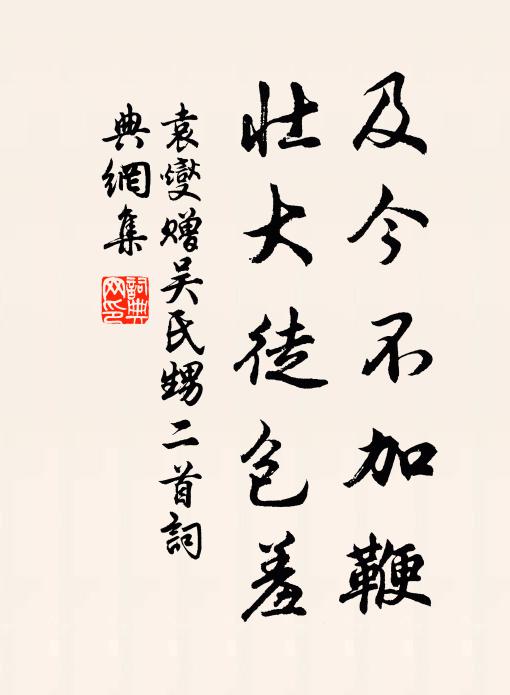 及今不加鞭
壮大徒包羞
袁燮赠吴氏甥二首詞
典網集
詞典
网印